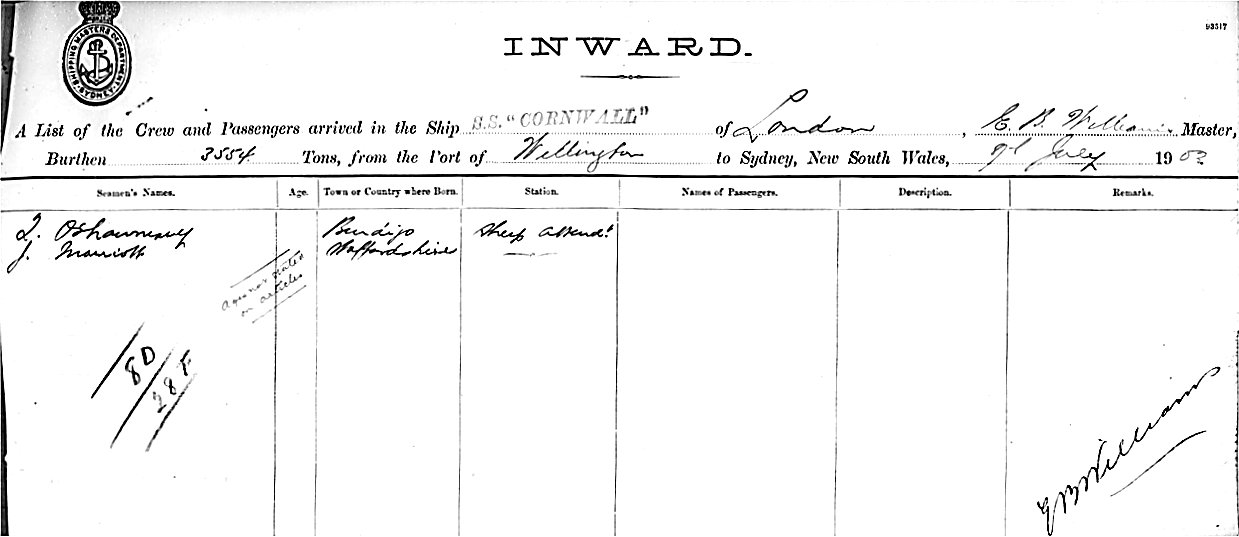 SHIPPING MASTERS DEPARTMENT.
SYDNEY
93517
INWARD.
A List of the Crew and Passengers arrived in the Ship S.S. "CORNWALL" of London, E. B. Williams Master,
Burthen 3554 Tons, from the Port of Wellington to Sydney, New South Wales, 9th July 1903
Seamen's Names. Age. Town or Country where Born. Station. Names of Passengers. Description. Remarks.
J. Marriott Staffordshire
Sheep Attendt
Bendigo
ages not stated
on articles
8D
28F
E B Williams